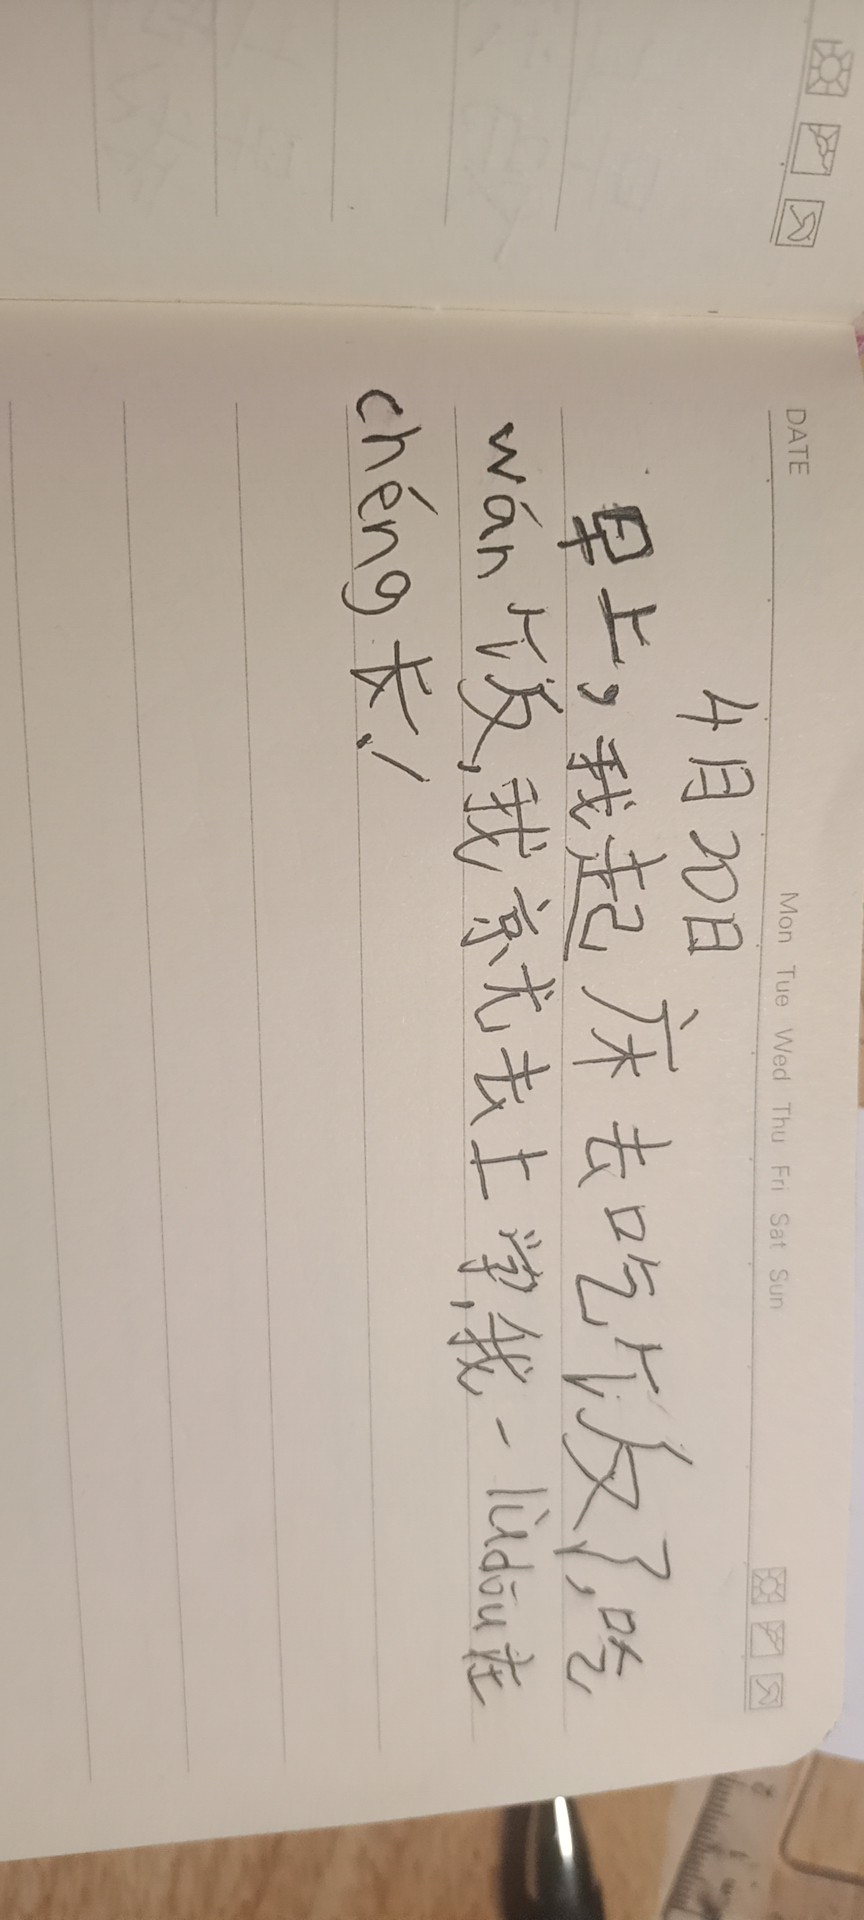 DATE
Mon Tue Wed Thu Fri Sat Sun
4月20日
早上,我起床去吃饭了,吃
wán饭,我就去上学,我一lùdōu在
chéng长!